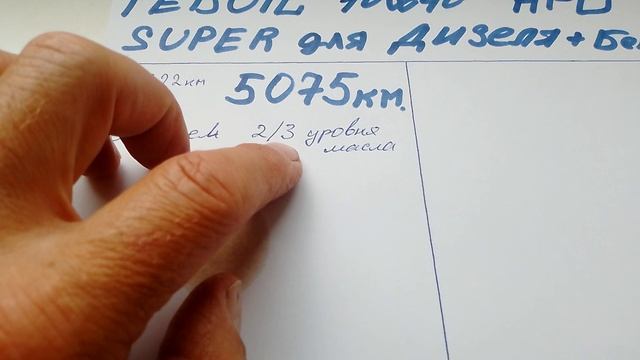 SUPER для Дизеля + Бе
22км 5075км.
ем 2/3 уровня
масла